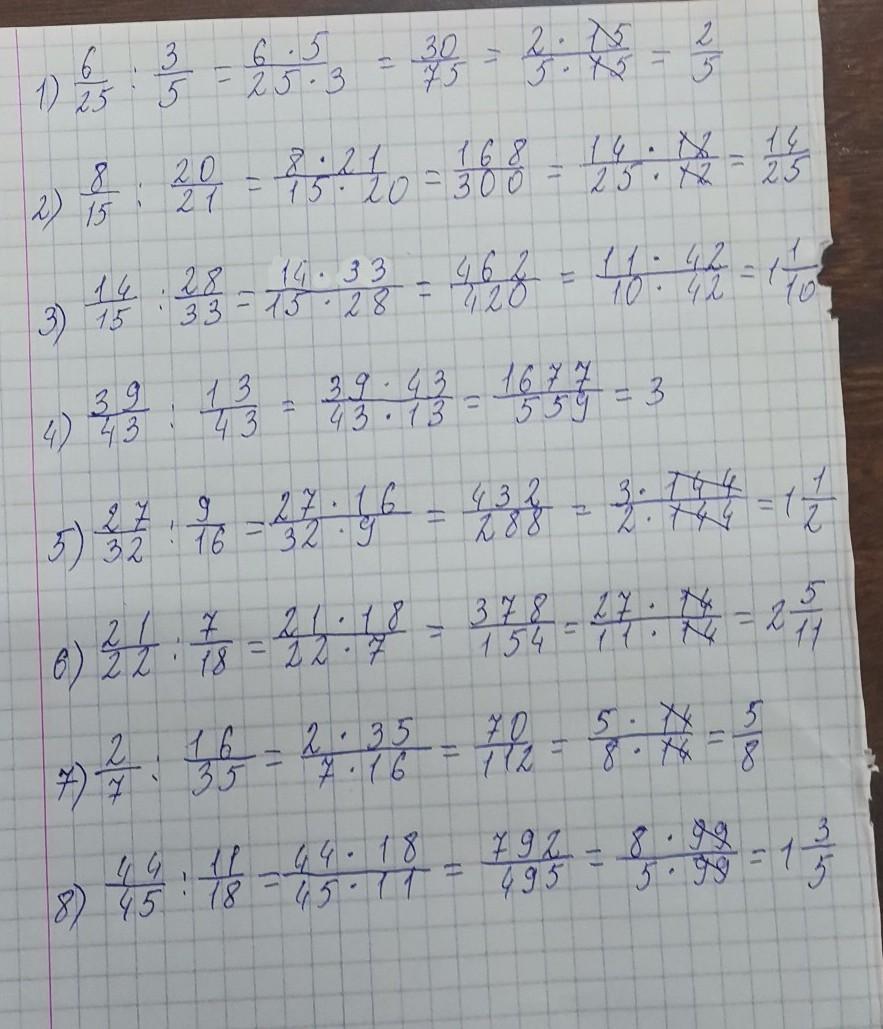 1) 6/25 : 3/5 = 6·5/25·3 = 30/75 = 2·15/5·15 = 2/5
2) 8/15 : 20/21 = 8·21/15·20 = 168/300 = 14·12/25·12 = 14/25
3) 14/15 : 28/33 = 14·33/15·28 = 462/420 = 11·42/10·42 = 1 1/10
4) 39/43 : 13/43 = 39·43/43·13 = 1677/559 = 3
5) 27/32 : 9/16 = 27·16/32·9 = 432/288 = 3·144/2·144 = 1 1/2
6) 21/22 : 7/18 = 21·18/22·7 = 378/154 = 27·14/11·14 = 2 5/11
7) 2/7 : 16/35 = 2·35/7·16 = 70/112 = 5·14/8·14 = 5/8
8) 44/45 : 11/18 = 44·18/45·11 = 792/495 = 8·99/5·99 = 1 3/5